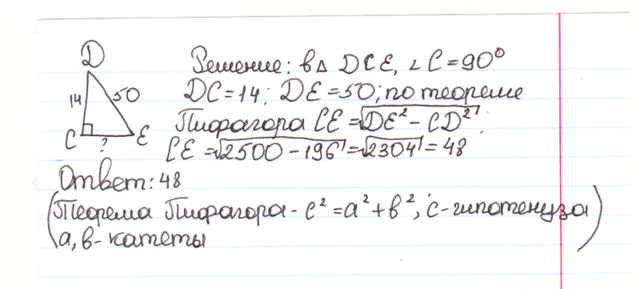 D
14
50
C
E
?
Решение: в△ DCE, ∠C=90°
DC=14; DE=50; по теореме
Пифагора CE=√DE²-CD²;
CE=√2500-196=√2304=48
Ответ: 48
(Теорема Пифагора - c²=a²+b², c-гипотенуза
a, в-катеты)